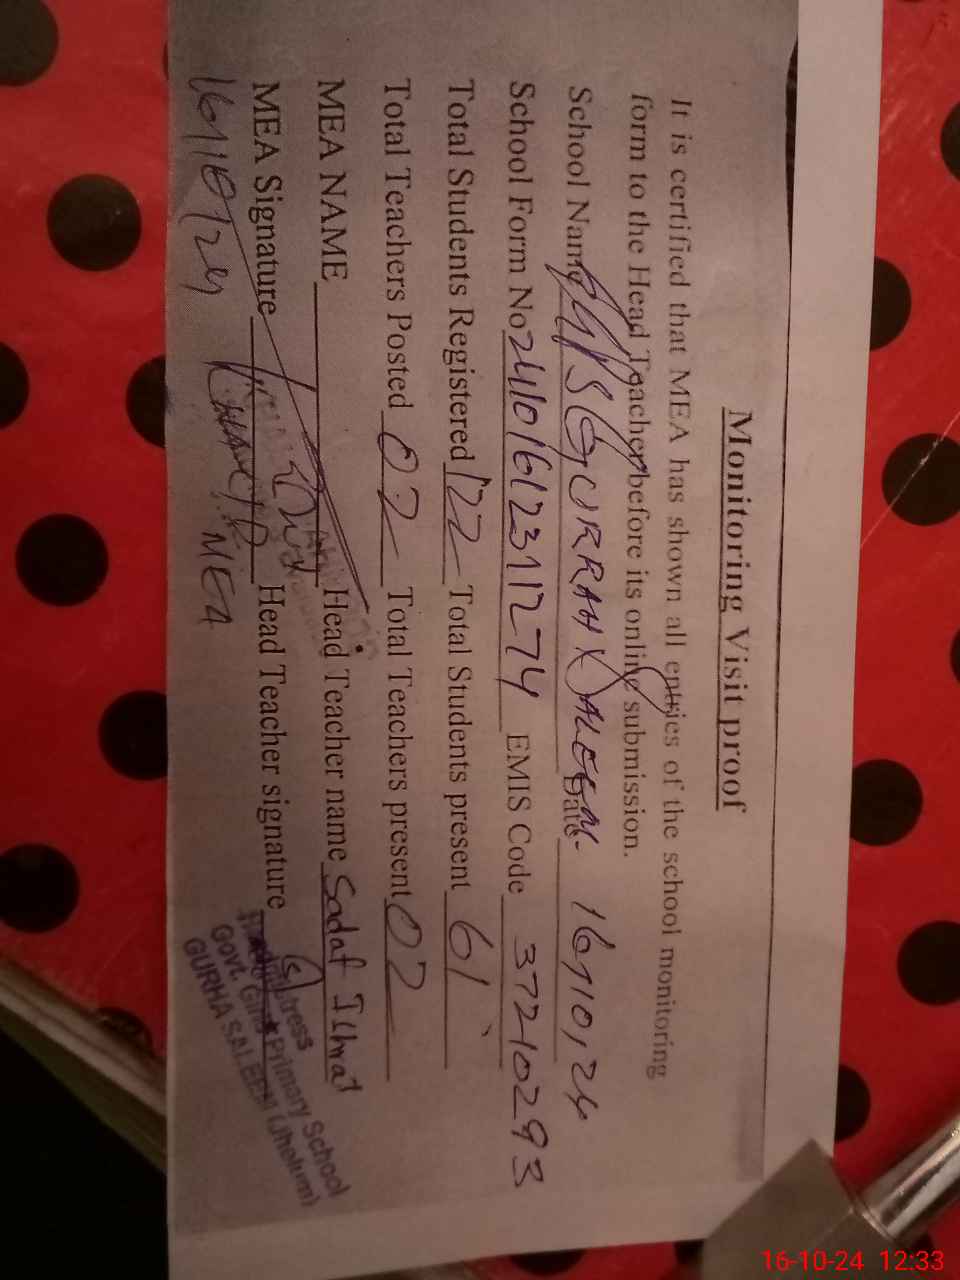 Monitoring Visit proof
It is certified that MEA has shown all entries of the school monitoring
form to the Head Teacher before its online submission.
School Name GGPS GURRAH SALEEM. Date 16,10,24
School Form No 241016123111274 EMIS Code 37210293
Total Students Registered 122 Total Students present 61
Total Teachers Posted 02 Total Teachers present 02
MEA NAME Head Teacher name Sadaf
MEA Signature Head Teacher signature
16/10/24 MEA
Govt. Girls Primary School
GURHA SALEEM (Jhelum)
16-10-24 12:33